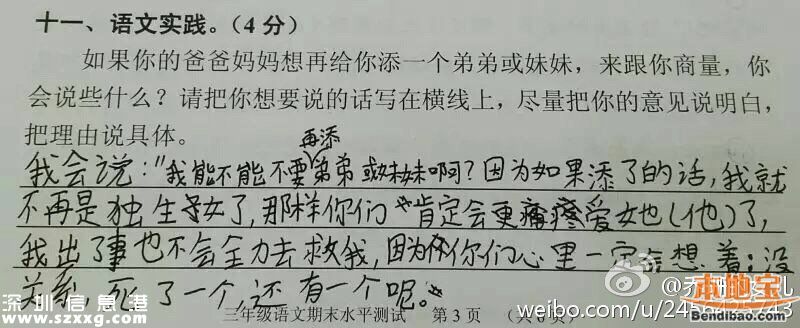 十一、语文实践。（4分）
如果你的爸爸妈妈想再给你添一个弟弟或妹妹，来跟你商量，你
会说些什么？请把你想要说的话写在横线上，尽量把你的意见说明白，
把理由说具体。
再添
我会说："我能不能不要弟弟或妹妹啊？因为如果添了的话，我就
不再是独生子女了，那样你们肯定会更疼爱她（他）了，
我出了事也不会全力去救我，因为你们心里一定会想着：没
关系，死了一个，还有一个呢。"
深圳信息港
www.szxxg.com
三年级语文期末水平测试 第3页 （共6页）
weibo.com/u/245
本地宝
Bendibao.com